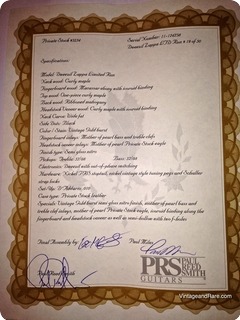 Private Stock #3234
Serial Number: 11-176236
Dweezil Zappa LTD Run # 14 of 50
Model: Dweezil Zappa Limited Run
Neck wood: Curly maple
Fingerboard wood: Macassar ebony with curved binding
Top wood: One-piece curly maple
Back wood: Ribboned mahogany
Headstock Veneer wood: Curly maple with curved binding
Neck Carve: Wide fat
Side Dots: Black
Color / Stain: Vintage Gold burst
Fingerboard inlays: Mother of pearl bass and treble clefs
Headstock veneer inlay: Mother of pearl Private Stock eagle
Finish type: Satin nitro
Pickups: Treble: 57/08 Bass: 57/08
Electronics: Dweezil with out-of-phase switching
Hardware: Nickel
bar, nickel vintage style tuning pegs and Schaller
strap locks
Set-Up:
Case type: Private Stock leather
Specials: Vintage Gold burst
nitro finish, mother of pearl bass and
treble clef inlays, mother of pearl Private Stock eagle, curved binding along the
fingerboard and headstock veneer as well as semi-hollow body with two f-holes
Final Assembly by
Paul Miles
Paul Reed Smith
PRS PAUL
REED
SMITH
GUITARS
VintageandRare.com